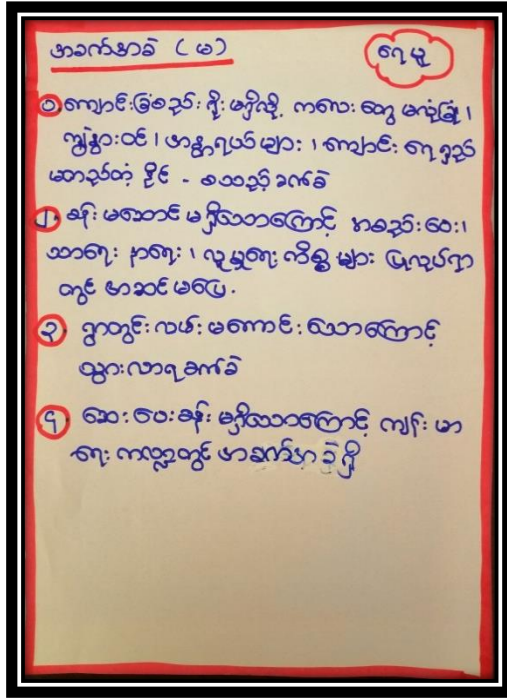 အခက်အခဲ (မ)
ရေမူ
၁. ကျောင်းခြံစည်းရိုးမရှိလို့ ကလေးတွေ မလုံခြုံ၊
ကျွဲနွားဝင်၊ အန္တရာယ်များ၊ ကျောင်းရေရှည်
မတည်တံ့နိုင် - စသည့်ခက်ခဲ
၂. ခန်းမဆောင်မရှိသောကြောင့် အစည်းဝေး၊
သာရေးနာရေး၊ လူမှုရေးကိစ္စများ ပြုလုပ်ရာ
တွင် အဆင်မပြေ.
၃. ရွာတွင်းလမ်းမကောင်းသောကြောင့်
သွားလာရခက်ခဲ
၄. ဆေးပေးခန်းမရှိသောကြောင့် ကျန်းမာ
ရေးကဏ္ဍတွင် အခက်အခဲရှိ